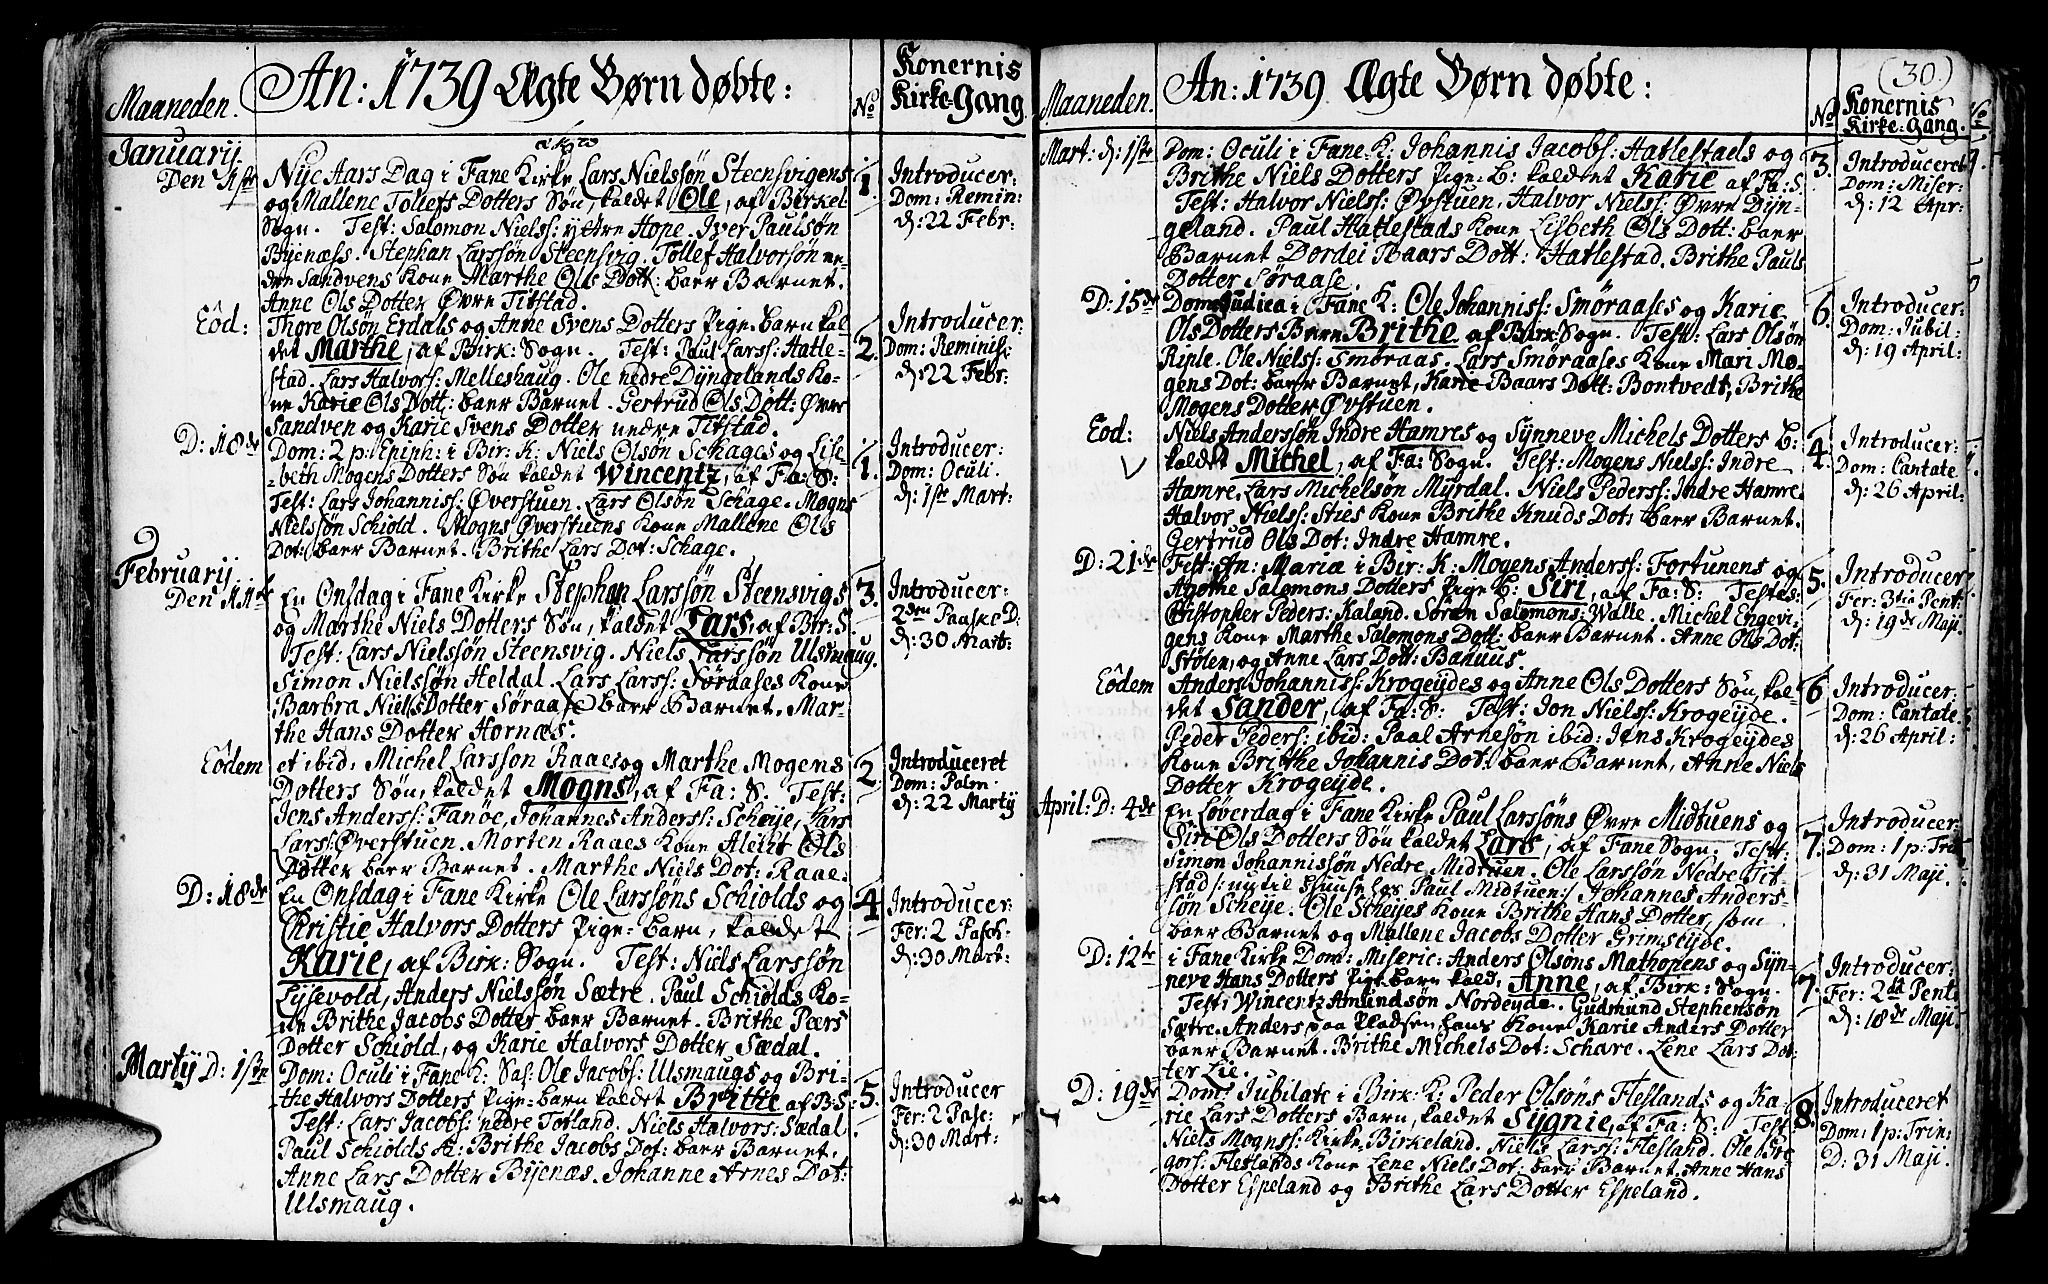 Maaneden.
An: 1739 Ægte Børn døbte:
No
Konernis
Kirke-Gang
Januarij
Den 1ste
Nye Aars Dag i Fane Kirke Lars Nielssøn Steensvigens
og Mallene Tollefs Dotters Søn, kaldet Ole, af Birkel.
Sogn. Test: Salomon Nielss: yttre Hope. Iver Paulsøn
Byenæss. Stephan Larssøn Steensvig. Tollef Halvorsøn ne-
dre Sandvens Kone Marthe Ols Dott: baer Barnet.
Anne Ols Dotter Øvre Titstad.
1.
Introducer:
Dom: Remin:
d: 22 Febr:
Eôd:
Thore Olsøn Erdals og Anne Svens Dotters Pige-barn kal-
det Marthe, af Birk: Sogn. Test: Paul Larss: Hatle-
stad. Lars Halvors: Melleshaug. Ole nedre Dyngelands Ko-
ne Karie Ols Dott: baer Barnet. Gertrud Ols Dott: Øvre
Sandven og Karie Svens Dotter nedre Titstad.
2.
Introducer:
Dom: Reminis:
d: 22 Febr:
D: 18de
Dom: 2 p: Epiph: i Bir: K: Niels Olsøn Schages og Lise-
beth Mogens Dotters Søn kaldet Wincentz, af Fa: S:
Test: Lars Johanniss: Øverstuen. Lars Olsøn Schage. Mogns
Nielssøn Schiold. Mogns Øverstuens Kone Mallene Ols
Dot: baer Barnet. Brithe Lars Dot: Schage.
1.
Introducer:
Dom: Oculi.
d: 1ste Mart:
Februarij
Den 11te
En Onsdag i Fane Kirke Stephan Larssøn Steensvigs
og Marthe Niels Dotters Søn, kaldet Lars, af Bir: S.
Test: Lars Nielssøn Steensvig. Niels Larssøn Ulsmaug.
Simon Nielssøn Heldal. Lars Larss: Søraases Kone
Barbra Niels Dotter Søraase baer Barnet. Mar-
the Hans Dotter Hornæs.
3.
Introducer:
2den Paaske D:
d: 30 Marts:
Eôdem
et ibid: Michel Larsson Raaes og Marthe Mogens
Dotters Søn, kaldet Mogns, af Fa: S: Test:
Jens Anderss: Fanøe, Johannes Anderss: Scheye, Lars
Larss: Øverstuen. Morten Raaes Kone Aleiht Ols
Dotter baer Barnet. Marthe Niels Dot: Raae.
2
Introduceret
Dom: Palm:
d: 22 Martij
D: 18de
En Onsdag i Fane Kirke Ole Larssøns Schiolds og
Christie Halvors Dotters Pige-barn, kaldet
Karie, af Birk: Sogn. Test: Niels Larssøn
Lysevold, Anders Nielssøn Sætre. Paul Schiolds Ko-
ne Brithe Jacobs Dotter baer Barnet. Brithe Peers
Dotter Schiold, og Karie Halvors Dotter Sædal.
4
Introducer:
Fer: 2 Pasch:
d: 30 Mart:
Martij D: 1ste
Dom: Oculi i Fane K: Sas: Ole Jacobs: Ulsmaugs og Bri-
the Halvors Dotters Pige-barn kaldet Brithe af B: S:
Test: Lars Jacobs: nedre Totland. Niels Halvors: Sædal
Paul Schiolds K: Brithe Jacobs Dot: baer Barnet,
Anne Lars Dotter Bisenæs. Johanne Arnes Dot:
Ulsmaug.
5.
Introducer
Fer: 2 Pasc:
d: 30 Mart:
Maaneden.
An: 1739 Ægte Børn døbte:
(30.)
No
Konernis
Kirke-Gang.
Mart: d: 1ste
Dom: Oculi i Fane K: Johannis Jacobs: Hatlestads og
Brithe Niels Dotters Pige-B: kaldet Karie af Fa: S.
Test: Halvor Nielss: Øvstuen, Halvor Nielss: Øvre Dyn-
geland. Paul Hatlestads Kone Lisbeth Ols Dott: baer
Barnet Dordei Baars Dott: Hatlestad. Brithe Pauls
Dotter Søraase.
3.
Introduceret
Dom: Miser:
d: 12 Apr:
D: 15de
Dom: Judica i Fane K: Ole Johanniss: Smøraases og Karie
Ols Dotters Barn Brithe af Birk: Sogn. Test: Lars Olsøn
Riple. Ole Nielss: Smøraas. Lars Smøraases Kone Mari Mo-
gens Dot: baer Barnet, Karie Baars Dott: Bontvedt, Brithe
Mogens Dotter Øvstuen.
6.
Introducer:
Dom: Jubil:
d: 19 April:
Eod:
Niels Anderssøn Indre Hamres og Synneve Michels Dotters B:
kaldet Michel, af Fa: Sogn. Test: Mogens Nielss: Indre
Hamre. Lars Michelsøn Myrdal. Niels Pederss: Indre Hamre.
Halvor Nielss: Sties Kone Brithe Knuds Dot: baer Barnet.
Gertrud Ols Dot: Indre Hamre.
4.
Introducer:
Dom: Cantate
d: 26 April:
D: 21de
Fest: An: Mariæ i Bir: K: Mogens Anderss: Fortunens og
Agothe Salomons Dotters Pige B: Siri, af Fa: S: Testes:
Christopher Peders: Kaland. Søren Salomons: Walle. Michel Engevi-
gens Kone Marthe Salomons Dott: baer Barnet. Anne Ols Dot:
Stølen, og Anne Lars Dott: Banuus.
5.
Introducer
Fer: 3tia Pent:
d: 19de Maji.
Eôdem
Anders Johanniss: Krogeydes og Anne Ols Dotters Søn, kal-
det Sander, af Fa: S: Test: Jon Nielss: Krogeyde.
Peder Peders: ibid: Paal Arnesøn ibid: Jens Krogeydes
Kone Brithe Johannis Dot: baer Barnet, Anne Niels
Dotter Krogeyde.
6
Introducer:
Dom: Cantate.
d: 26 April:
April: D: 4de
En Løverdag i Fane Kirke Paul Larssøns Øvre Midtuens og
Siri Ols Dotters Søn kaldet Lars, af Fane Sogn. Test:
Simon Johannissøn Nedre Midtuen. Ole Larssøn Nedre Tit-
stad /: nu til Huuse hos Paul Midtuen :/ Johannes Anders-
søn Scheye. Ole Scheyes Kone Brithe Hans Dotter, som
baer Barnet og Mallene Jacobs Dotter Grimseyde.
7.
Introducer:
Dom: 1 p: Trin
d: 31 Maji.
D: 12te
i Fane Kirke Dom: Miseric: Anders Olsøns Mathopens og Syn-
neve Hans Dotters Pige-barn kald, Anne, af Birk: Sogn.
Test: Wincentz Amundsøn Nordeyde. Gudmund Stephensøn
Sætre. Anders paa Pladsen hans Kone Karie Anders Dotter
baer Barnet. Brithe Michels Dot: Schare. Lene Lars Dot-
ter Lie.
7.
Introducer:
Fer: 2da Pent
d: 18de Maji
D: 19de
Dom: Jubilate i Birk: K: Peder Olsøns Fleslands og Ka-
rie Lars Dotters Barn, kaldet Sygnie, af Fa: S: Test:
Niels Mognss: Kirke-Birkeland. Niels Larss: Flesland. Ole Gre
gors: Fleslands Kone Lene Niels Dot: baer Barnet. Anne Hans
Dotter Espeland og Brithe Lars Dotter Espeland.
8.
Introduceret
Dom: 1 p: Trin:
D: 31 Maji.